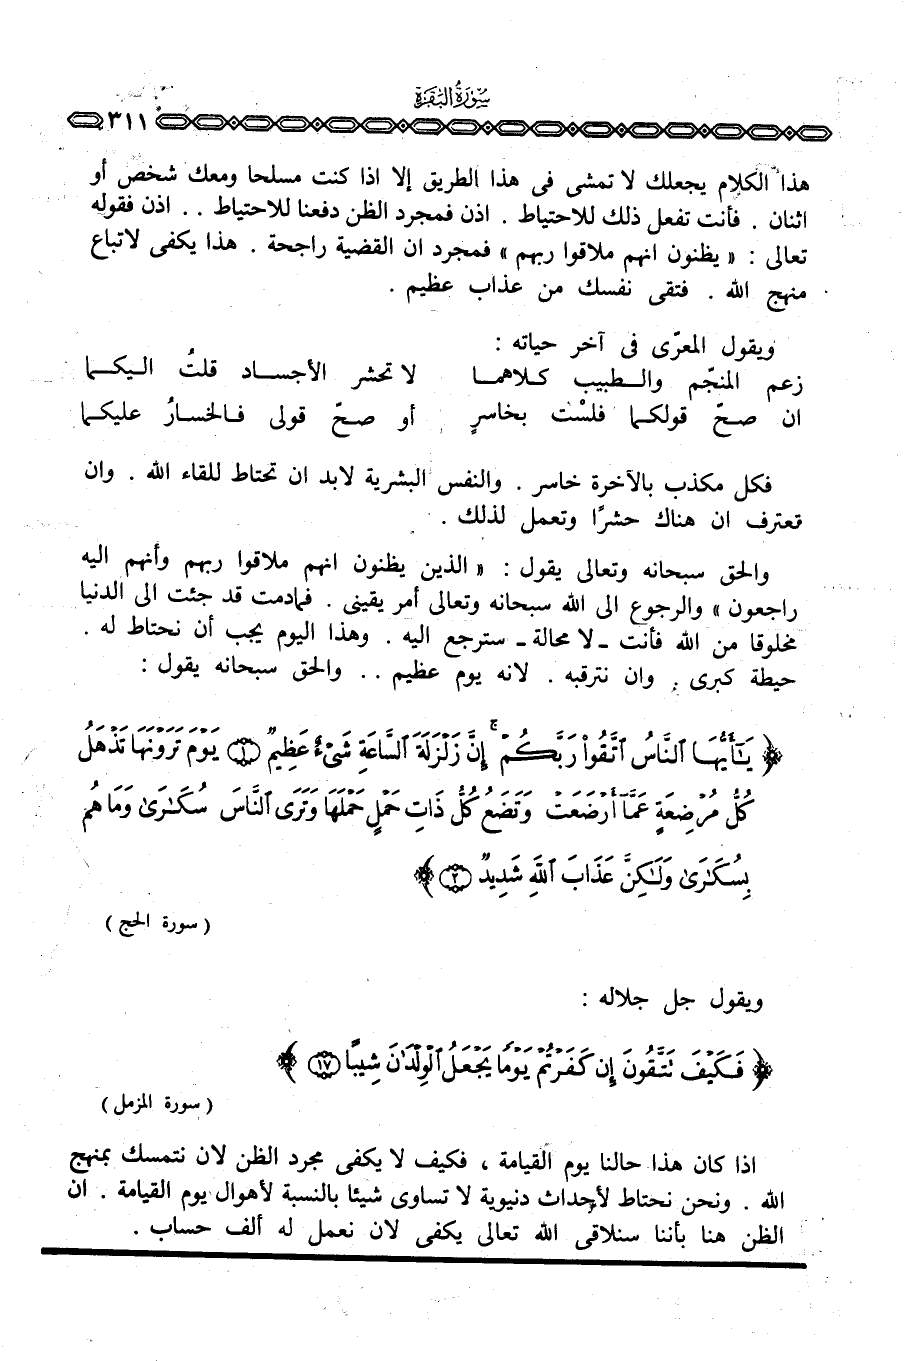 سورة البقرة
٣١١
هذا الكلام يجعلك لا تمشى فى هذا الطريق إلا اذا كنت مسلحا ومعك شخص أو
اثنان . فأنت تفعل ذلك للاحتياط . اذن فمجرد الظن دفعنا للاحتياط . . اذن فقوله
تعالى : « يظنون انهم ملاقوا ربهم » فمجرد ان القضية راجحة . هذا يكفى لاتباع
منهج الله . فتقى نفسك من عذاب عظيم .
ويقول المعرّى فى آخر حياته :
زعم المنجّم والطبيب كلاهما لا تحشر الأجساد قلتُ اليكما
ان صحّ قولكما فلسْت بخاسرٍ أو صحّ قولى فالخسارُ عليكما
فكل مكذب بالآخرة خاسر . والنفس البشرية لابد ان تحتاط للقاء الله . وان
تعترف ان هناك حشرًا وتعمل لذلك .
والحق سبحانه وتعالى يقول : « الذين يظنون انهم ملاقوا ربهم وأنهم اليه
راجعون » والرجوع الى الله سبحانه وتعالى أمر يقينى . فمادمت قد جئت الى الدنيا
مخلوقا من الله فأنت ـ لا محالة ـ سترجع اليه . وهذا اليوم يجب أن نحتاط له .
حيطة كبرى . وان نترقبه . لانه يوم عظيم . . والحق سبحانه يقول :
﴿ يَـٰٓأَيُّهَا ٱلنَّاسُ ٱتَّقُوا۟ رَبَّكُمْ ۚ إِنَّ زَلْزَلَةَ ٱلسَّاعَةِ شَىْءٌ عَظِيمٌ ۝١ يَوْمَ تَرَوْنَهَا تَذْهَلُ
كُلُّ مُرْضِعَةٍ عَمَّآ أَرْضَعَتْ وَتَضَعُ كُلُّ ذَاتِ حَمْلٍ حَمْلَهَا وَتَرَى ٱلنَّاسَ سُكَـٰرَىٰ وَمَا هُم
بِسُكَـٰرَىٰ وَلَـٰكِنَّ عَذَابَ ٱللَّهِ شَدِيدٌ ۝٢ ﴾
( سورة الحج )
ويقول جل جلاله :
﴿ فَكَيْفَ تَتَّقُونَ إِن كَفَرْتُمْ يَوْمًا يَجْعَلُ ٱلْوِلْدَٰنَ شِيبًا ۝١٧ ﴾
( سورة المزمل )
اذا كان هذا حالنا يوم القيامة ، فكيف لا يكفى مجرد الظن لان نتمسك بمنهج
الله . ونحن نحتاط لأحداث دنيوية لا تساوى شيئا بالنسبة لأهوال يوم القيامة . ان
الظن هنا بأننا سنلاقى الله تعالى يكفى لان نعمل له ألف حساب .